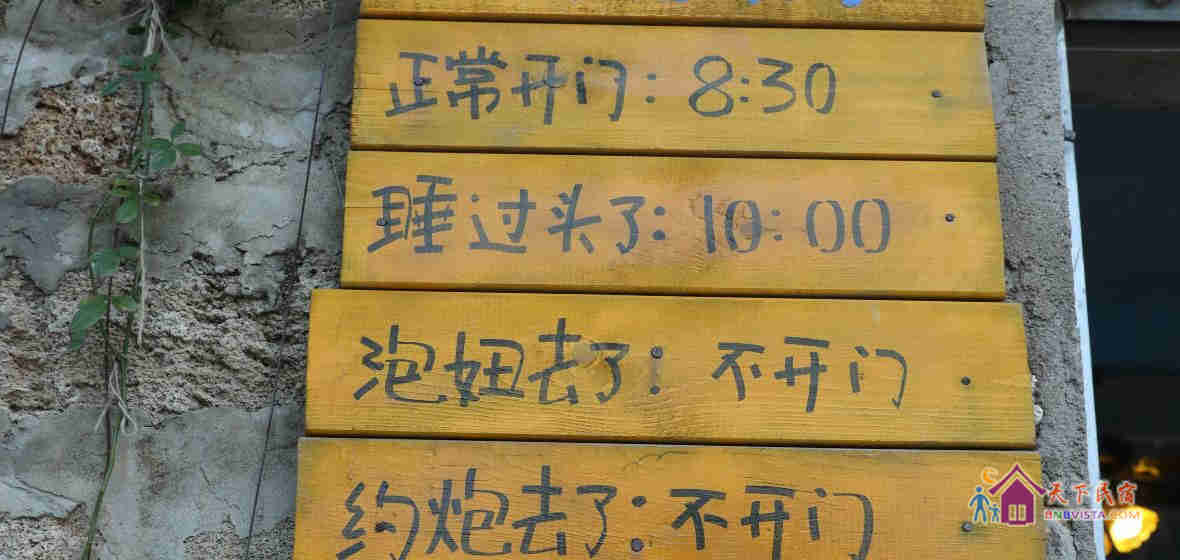 正常开门：8:30
睡过头了：10:00
泡妞去了：不开门
约炮去了：不开门
天下民宿
BNBVISTA.COM